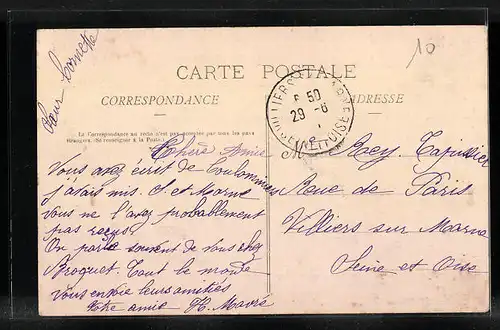 10
CARTE POSTALE
CORRESPONDANCE
ADRESSE
La Correspondance au recto n'est pas acceptée par tous les pays
étrangers. (Se renseigner à la Poste)
VILLIERS MARNE
SEINE ET OISE
50
29 - 6
Chère Amie
Vous avez écrit de Coulommiers
j'étais mis S. et Marne
vous ne l'avez probablement
pas reçue
On parle souvent de vous chez
Broquet. Tout le monde
vous envoie leurs amitiés
Votre amie
M Rey Tapissier
Rue de Paris
Villiers sur Marne
Seine et Oise